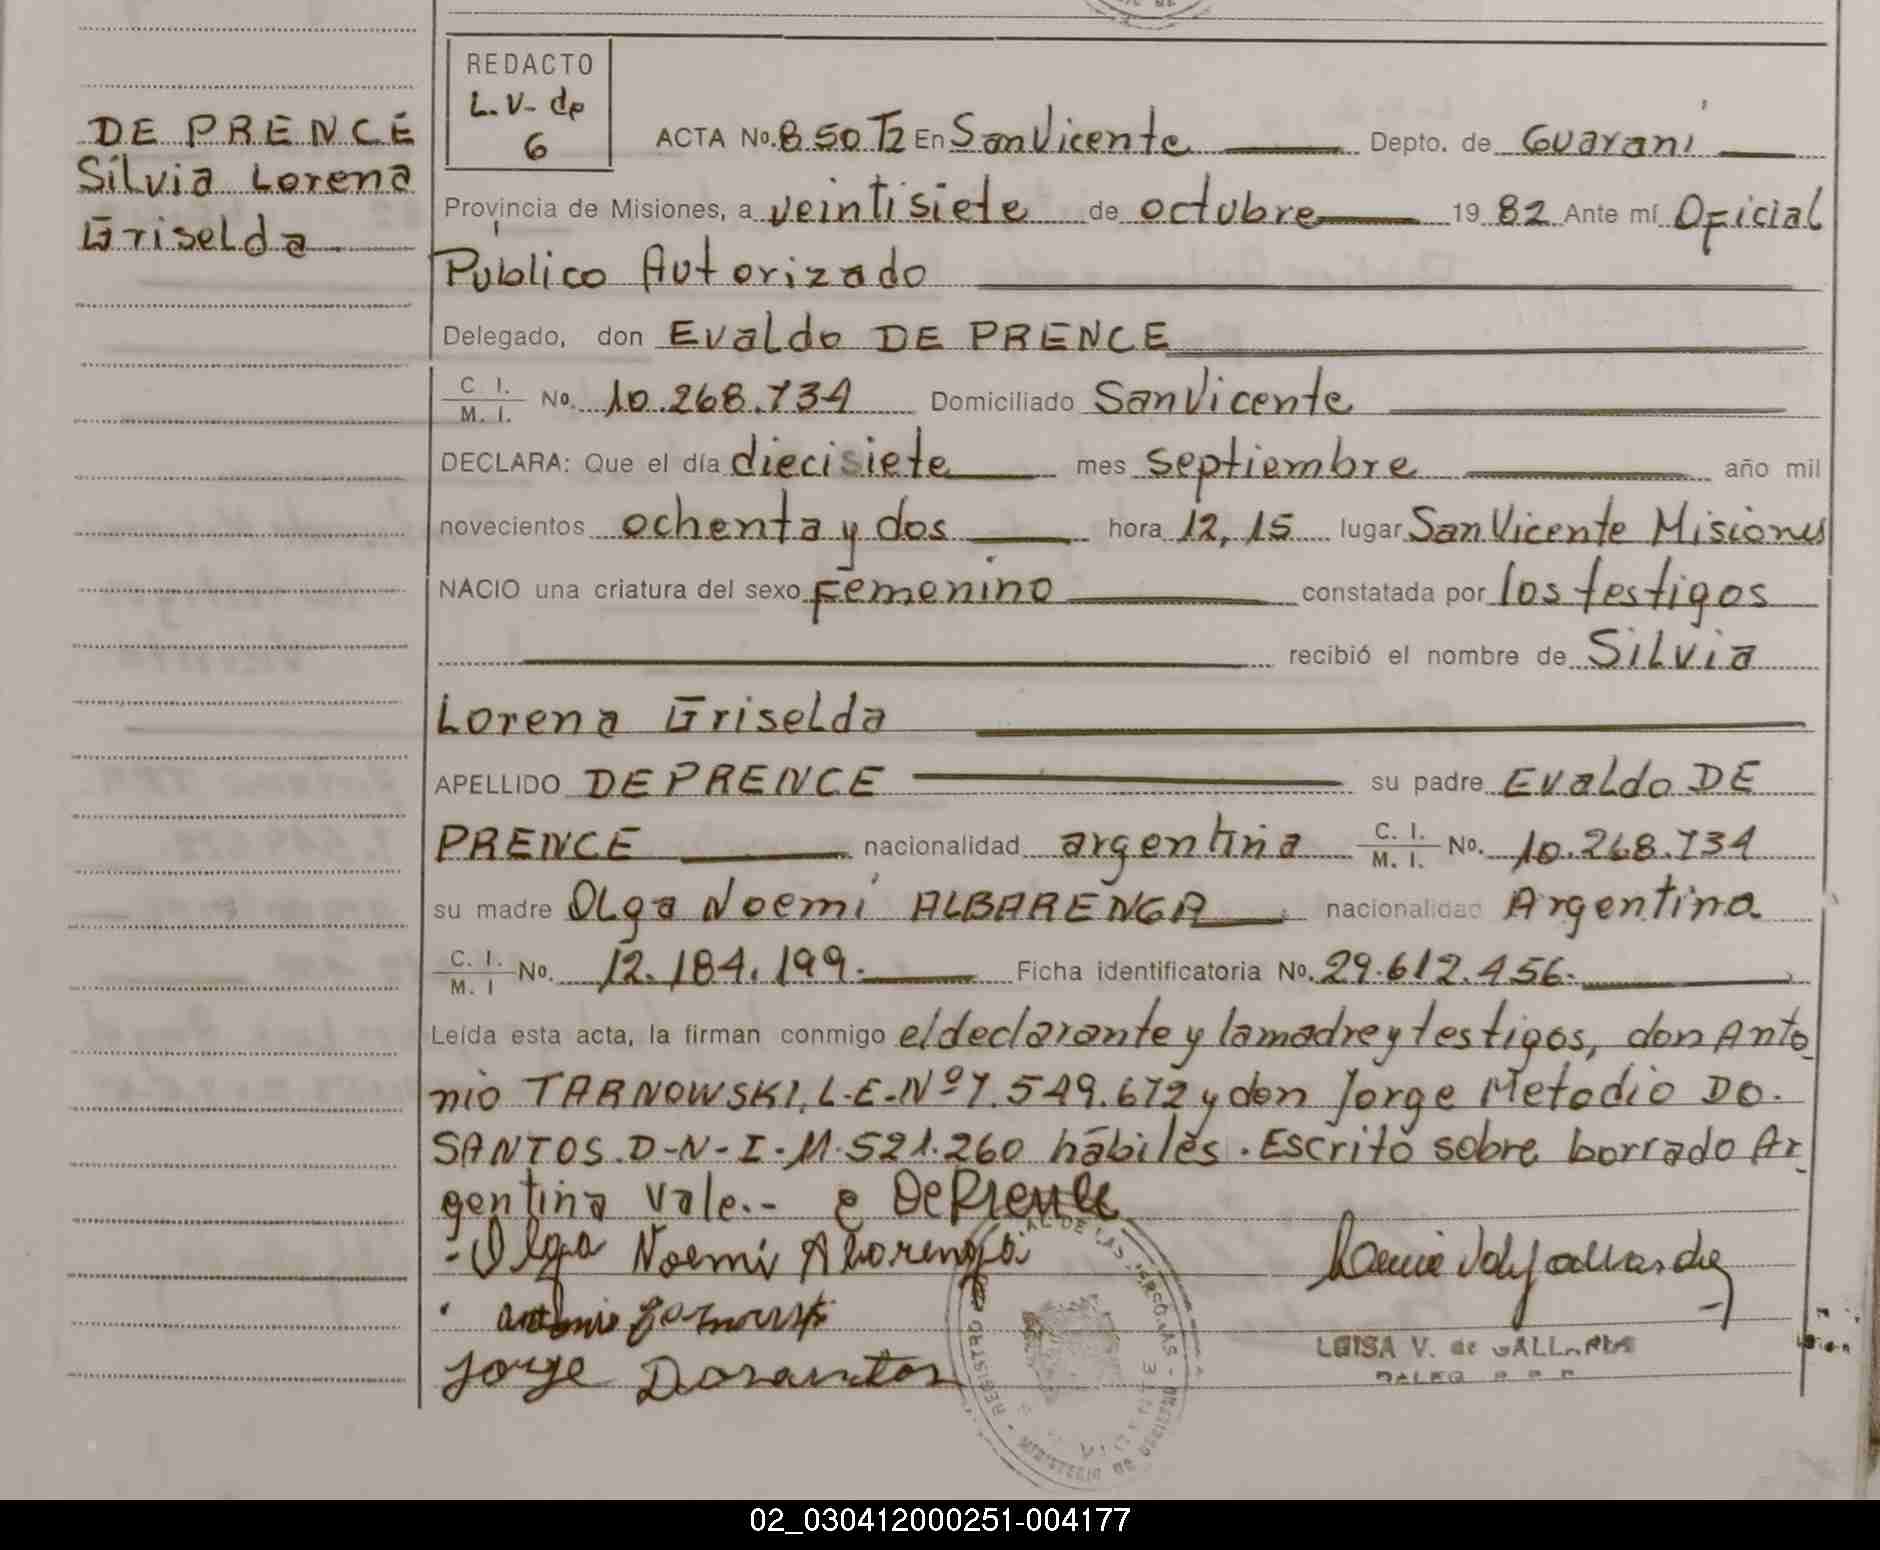 DE PRENCE
Silvia Lorena
Griselda
REDACTO
L.V- de
6
ACTA No. 850 T2 En San Vicente Depto. de Guaraní
Provincia de Misiones, a veintisiete de octubre 19 82 Ante mí Oficial
Público Autorizado
Delegado, don Evaldo DE PRENCE
C I. / M. I. No. 10.268.734 Domiciliado San Vicente
DECLARA: Que el día diecisiete mes septiembre año mil
novecientos ochenta y dos hora 12,15 lugar San Vicente Misiones
NACIO una criatura del sexo Femenino constatada por los testigos
recibió el nombre de Silvia
Lorena Griselda
APELLIDO DE PRENCE su padre Evaldo DE
PRENCE nacionalidad argentina C. I. / M. I. No. 10.268.734
su madre Olga Noemí ALBARENGA nacionalidad Argentina
C. I. / M. I No. 12.184.199. Ficha identificatoria No. 29.612.456.
Leída esta acta, la firman conmigo el declarante y la madre y testigos, don Anto
nio TARNOWSKI, L-E-Nº 7.549.672 y don Jorge Metodio DO.
SANTOS.D-N-I-11.521.260 hábiles. Escrito sobre borrado Ar
gentina vale.- e De Prence
Olga Noemi Alborenga
Antonio Tarnowski
Jorge Dosantos
LUISA V. de GALLARDA
REGISTRO
02_030412000251-004177